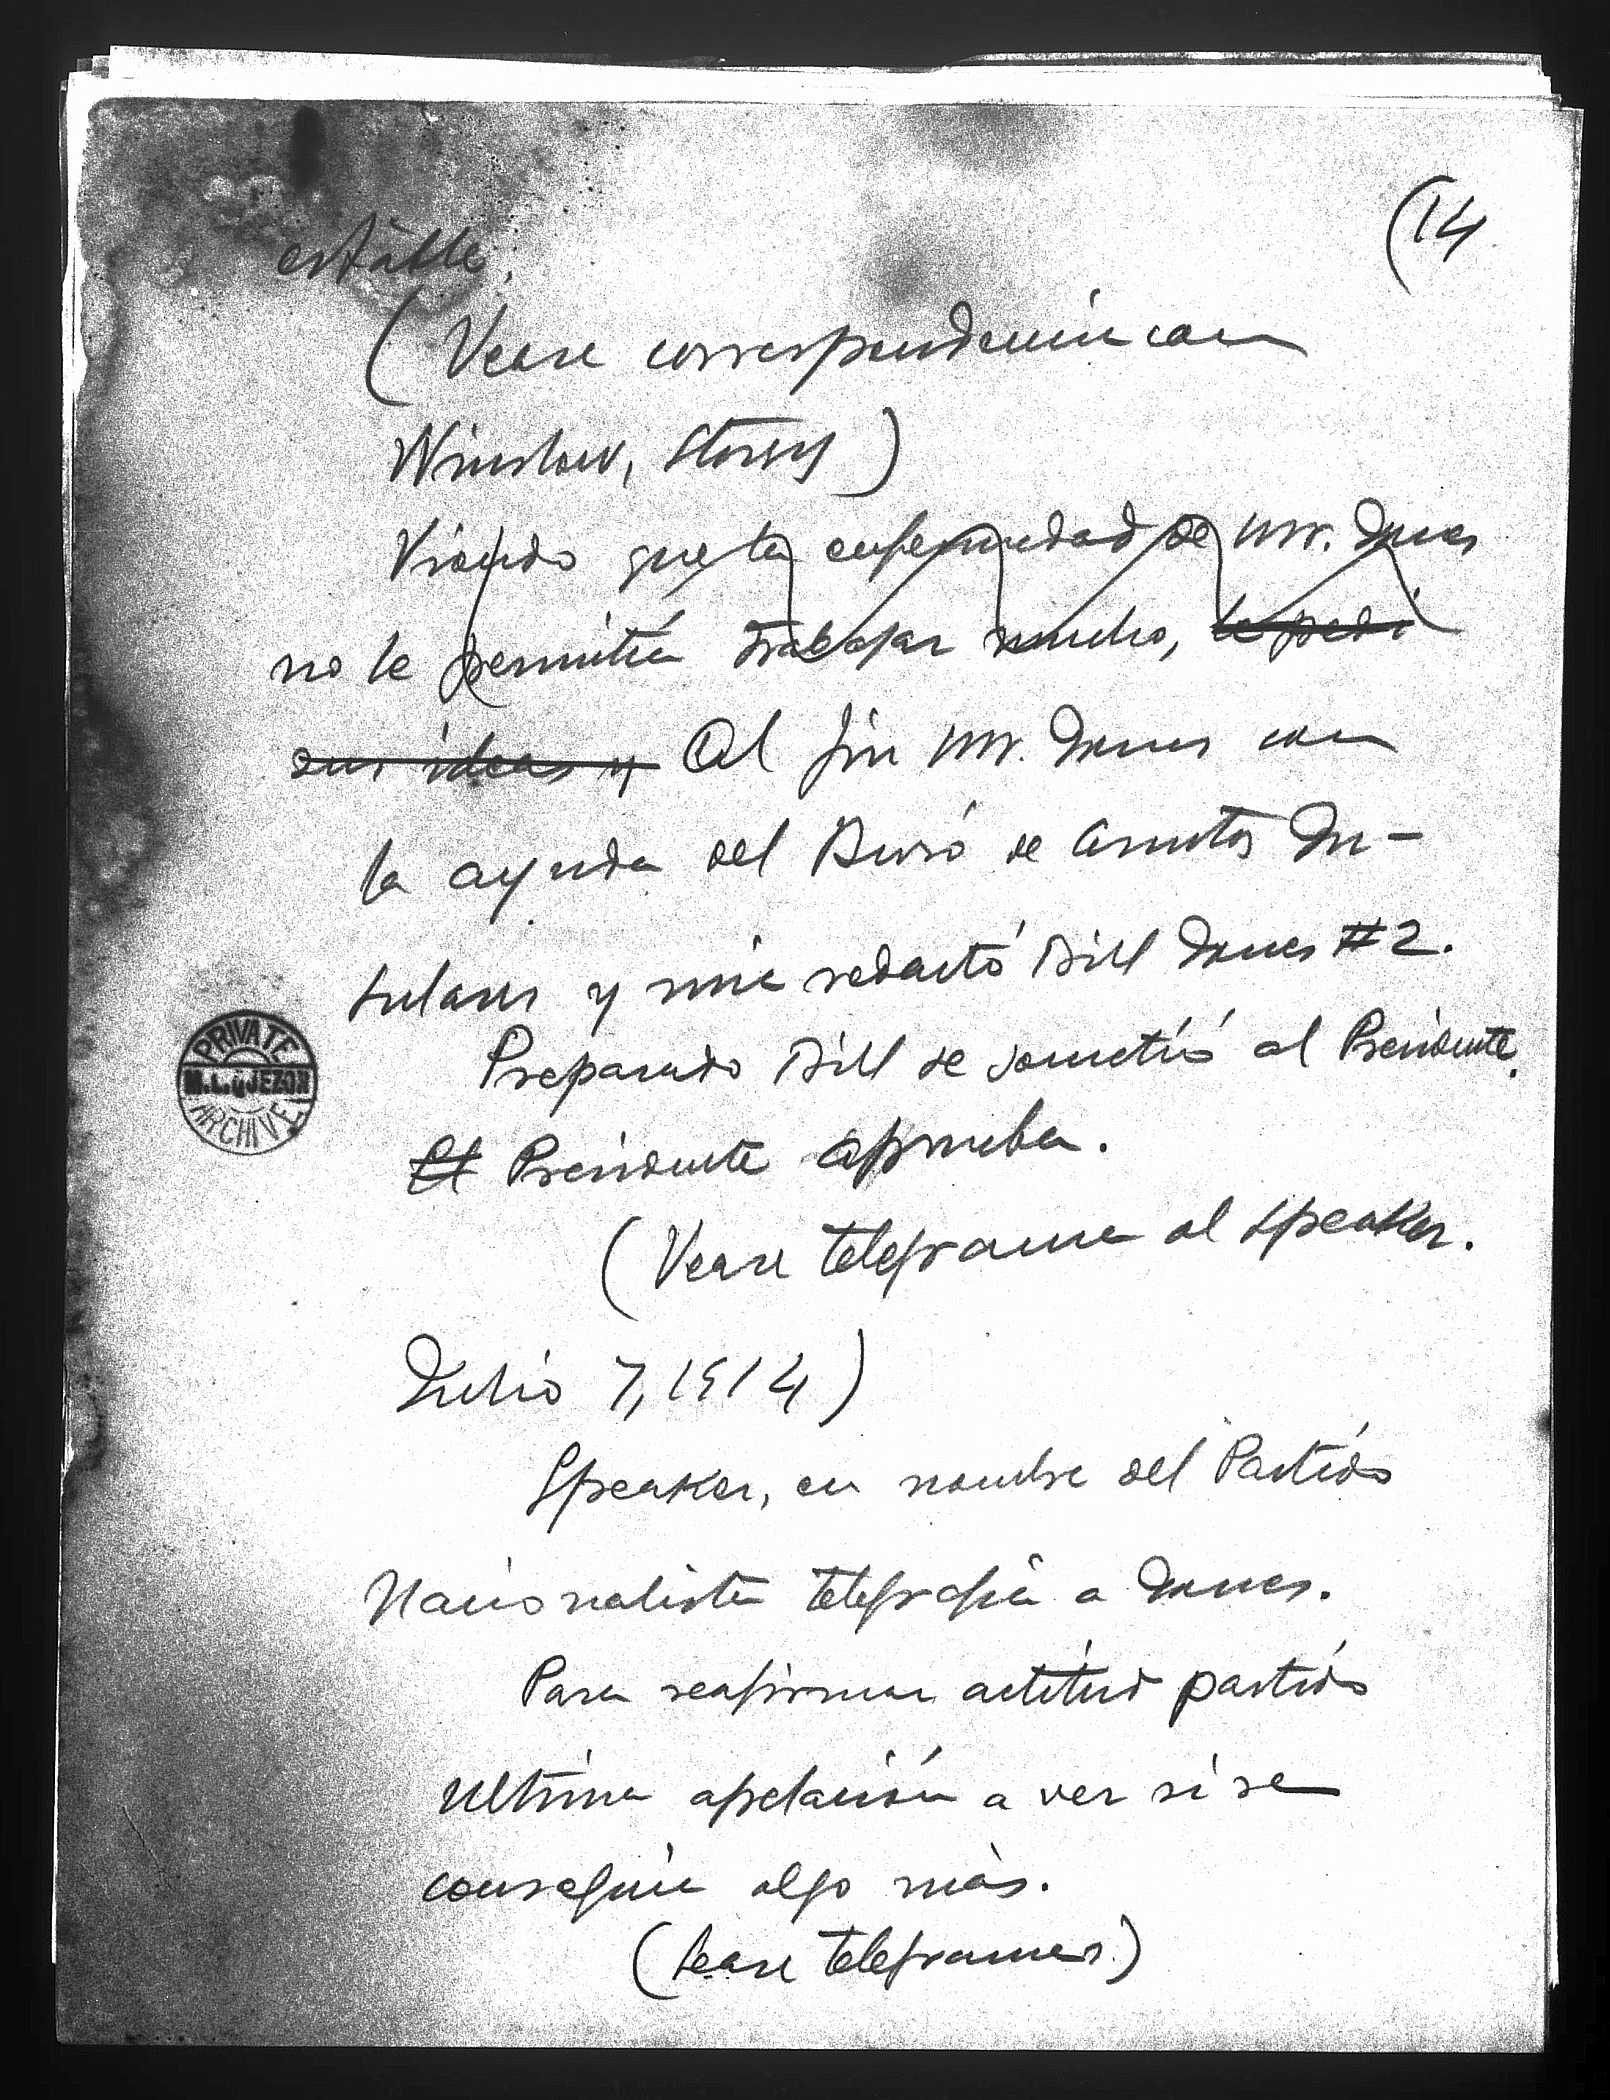 (14
estable.
(Vease correspondencia con
Winslow, Storey)
Viendo que la enfermedad de Mr. Jones
no le permitía trabajar mucho, le pedí
sus ideas y Al fin Mr. Jones con
la ayuda del Buró de Asuntos In-
sulares y mia redactó Bill Jones #2.
Preparado Bill se sometió al Presidente.
El Presidente aprueba.
(Vease telegrama al Speaker.
Julio 7, 1914)
Speaker, en nombre del Partido
Nacionalista telegrafía a Jones.
Para reafirmar actitud partido
Ultima apelación a ver si se
conseguia algo más.
(Lease telegramas)
PRIVATE
M.L. QUEZON
ARCHIVE